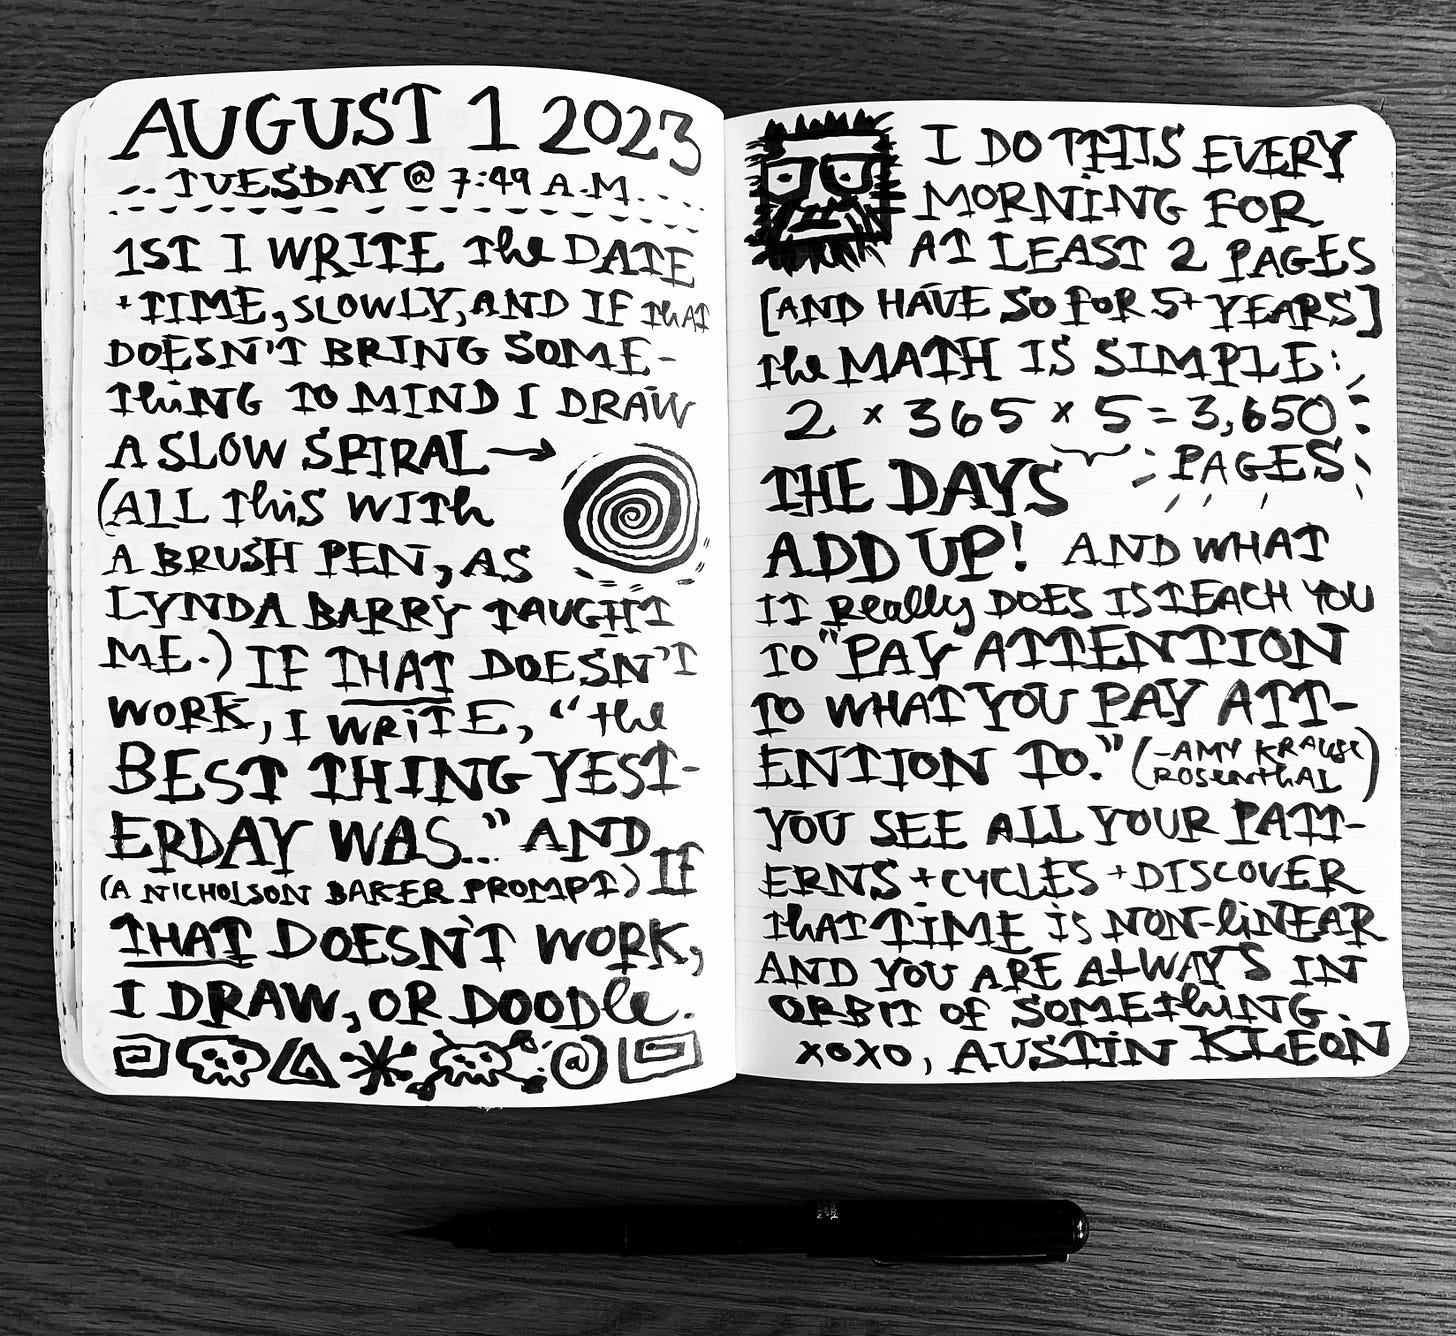 AUGUST 1 2023
TUESDAY @ 7:49 A.M.
1ST I WRITE the DATE
+ TIME, SLOWLY, AND IF THAT
DOESN'T BRING SOME-
THING TO MIND I DRAW
A SLOW SPIRAL →
(ALL THIS WITH
A BRUSH PEN, AS
LYNDA BARRY TAUGHT
ME.) IF THAT DOESN'T
WORK, I WRITE, "the
BEST THING YEST-
ERDAY WAS..." AND
(A NICHOLSON BAKER PROMPT) IF
THAT DOESN'T WORK,
I DRAW, OR DOODLE.
I DO THIS EVERY
MORNING FOR
AT LEAST 2 PAGES
[AND HAVE SO FOR 5+ YEARS]
the MATH IS SIMPLE:
2 × 365 × 5 = 3,650
PAGES
THE DAYS
ADD UP! AND WHAT
IT Really DOES IS TEACH YOU
TO "PAY ATTENTION
TO WHAT YOU PAY ATT-
ENTION TO." (-AMY KRAUSE
ROSENTHAL)
YOU SEE ALL YOUR PATT-
ERNS + CYCLES + DISCOVER
THAT TIME IS NON-LINEAR
AND YOU ARE ALWAYS IN
ORBIT OF SOMETHING.
XOXO, AUSTIN KLEON